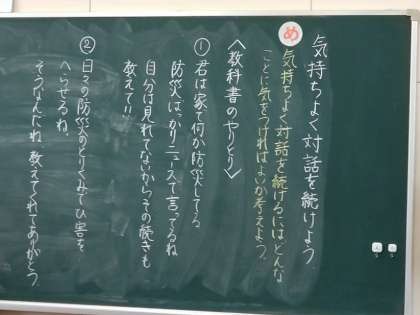 気持ちよく対話を続けよう
め 気持ちよく対話を続けるにはどんな
ことに気をつければよいか考えよう。
〈教科書のやりとり〉
① 君は家で何か防災してる
防災ばっかりニュースで言ってるね
自分は見れてないからその続きも
教えて!!
② 日々の防災のとりくみでひ害を
へらせるね。
そうなんだね、教えてくれてありがとう。